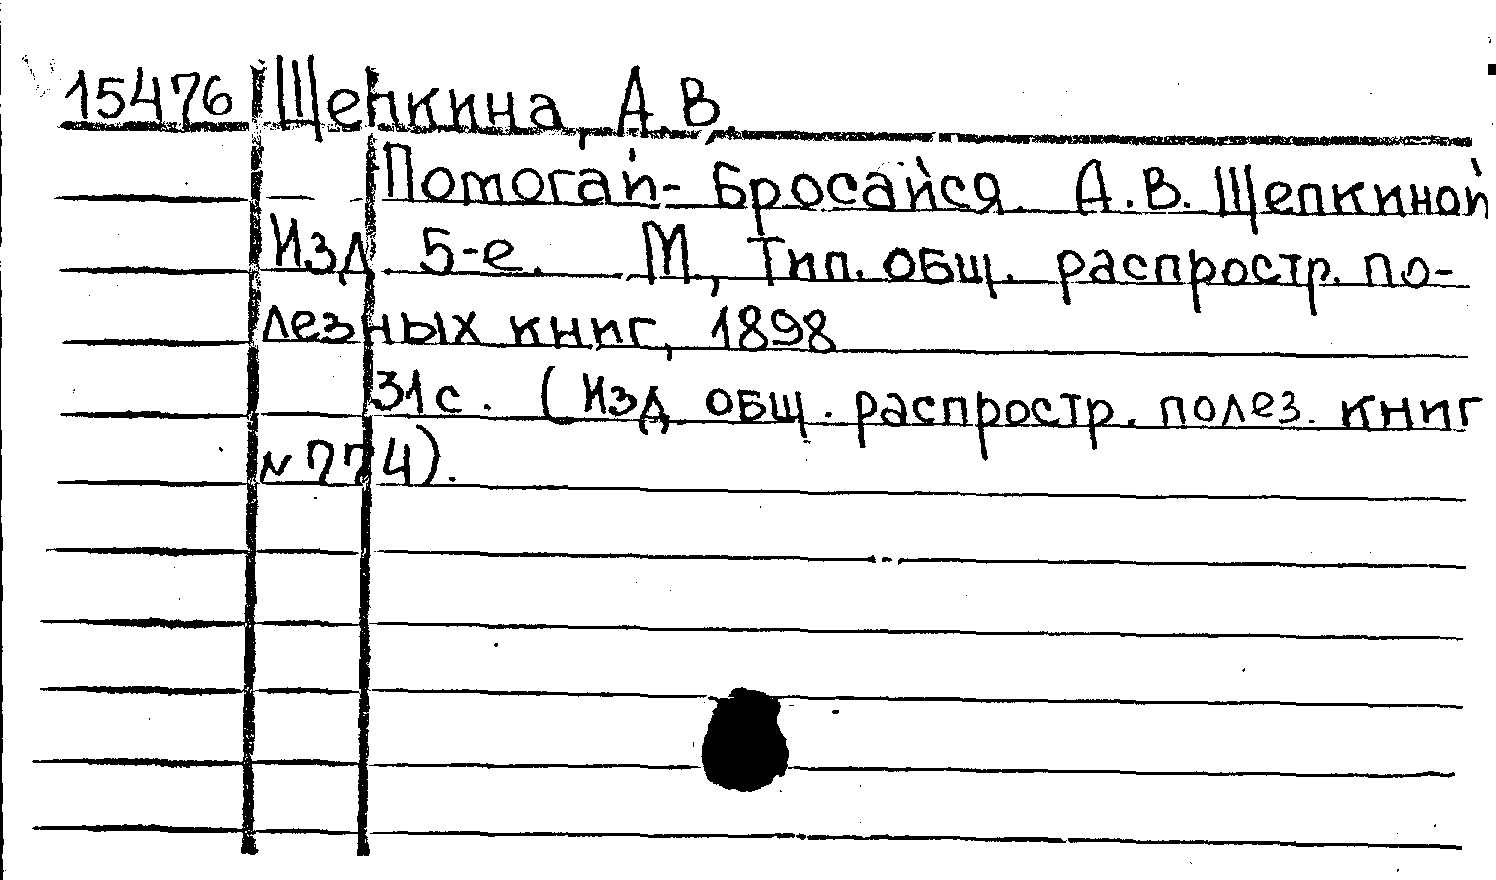 15476 Щепкина, А.В.
Помогай-Бросайся. А.В. Щепкиной
Изд. 5-е. М, Тип. общ. распростр. по-
лезных книг, 1898
31с. (Изд. общ. распростр. полез. книг
№ 774).